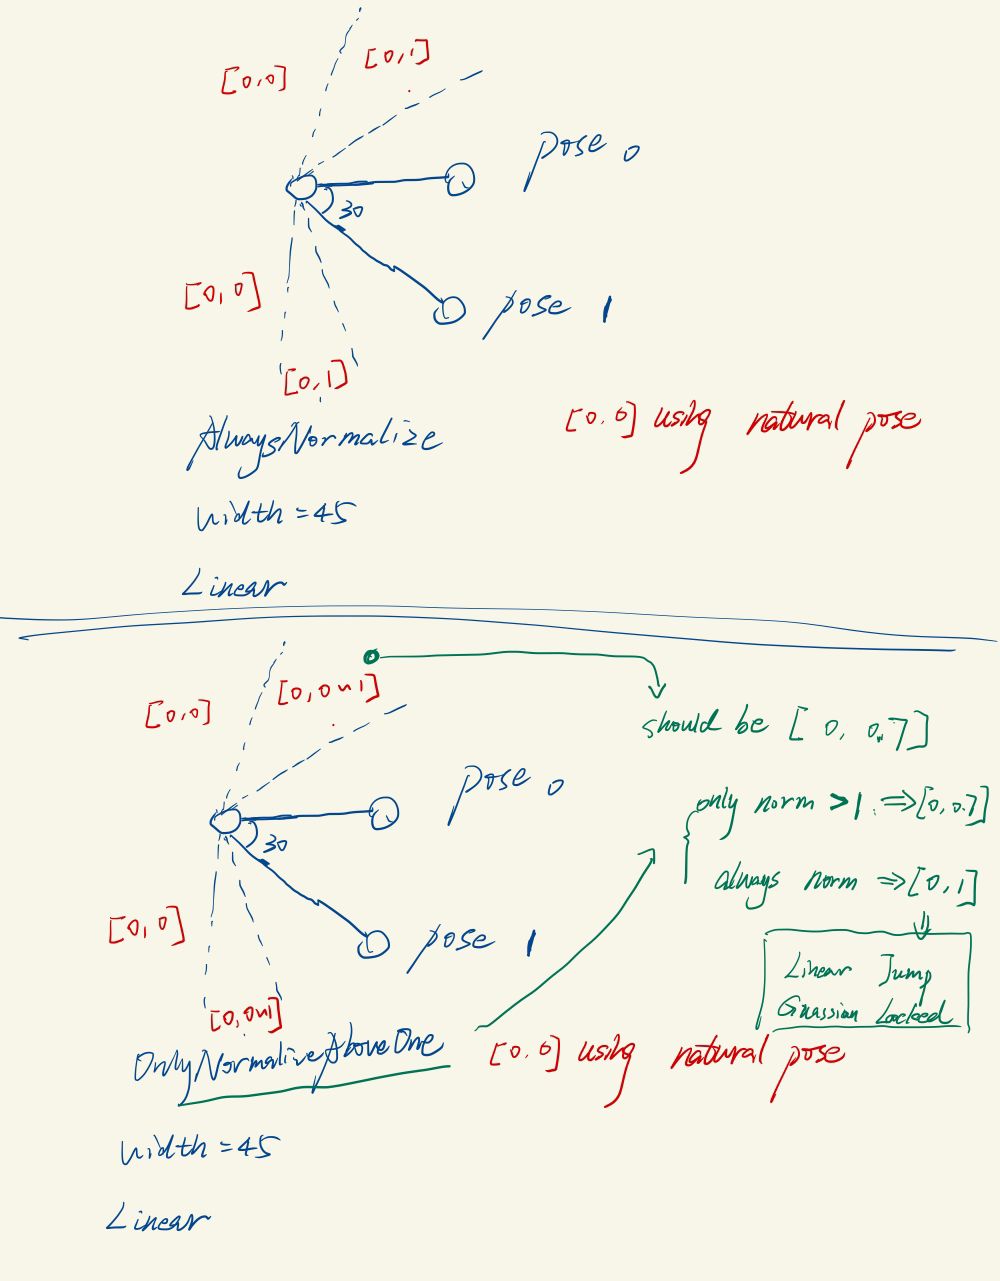 [0,0] [0,1]
pose 0
30
[0,0]
pose 1
[0,1]
AlwaysNormalize
[0,0] using natural pose
width = 45
Linear
[0,0] [0,0~1]
should be [0, 0.7]
pose 0
only norm >1 ⇒ [0,0.7]
30
always norm ⇒ [0,1]
[0,0]
pose 1
⇓
Linear Jump
Gaussian Locked
[0,0~1]
OnlyNormalizeAboveOne
[0,0] using natural pose
width = 45
Linear